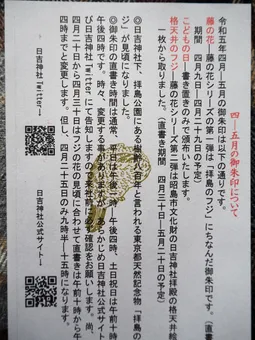 四—五月の御朱印について
令和五年四月、五月の御朱印は以下の通りです。
藤の花―藤の花シリーズの第一弾は「拝島のフジ」にちなんだ御朱印です。(直書
期間 四月九日―四月二十九日の予定)
こどもの日―書置きのみで頒布いたします。
格天井のフジ―藤の花シリーズ第二弾は昭島市文化財の日吉神社拝殿の格天井絵
一枚から取りました。(直書き期間 四月三十日―五月二十日の予定)
◎日吉神社下、拝島公園にある樹齢八百年と言われる東京都天然記念物「拝島の
ジ」が見頃になりました。
◎御朱印の直書き時間は通常、平日は午後二時―午後四時、土日祝日は午前十時
午後四時です。時々、変更する事がありますが、あらかじめ日吉神社公式サイト
び日吉神社Twitterにて告知しますので来社前に必ず確認をお願いします。尚、
四月二十日から四月三十日はフジの花の見頃に合わせて直書きは午前十時から午
四時までと変更します。但し、四月二十五日のみ九時半―十五時になります。
日吉神社Twitter→
日吉神社公式サイト→